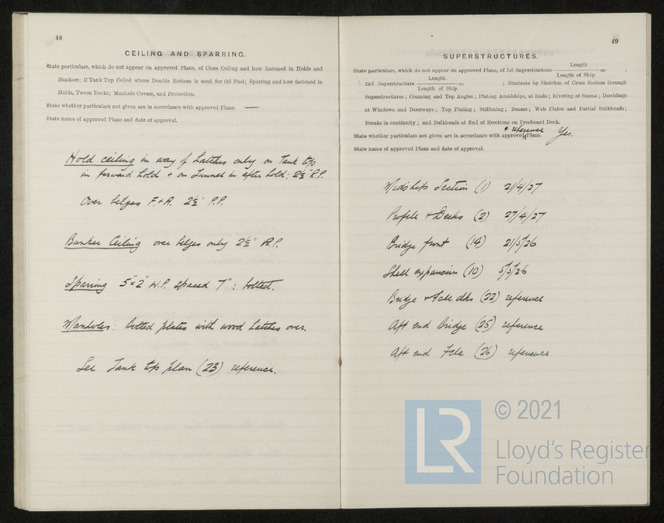 48
CEILING AND SPARRING.
State particulars, which do not appear on approved Plans, of Close Ceiling and how fastened in Holds and
Bunkers; if Tank Top Ceiled whose Double Bottom is used for Oil Fuel; Sparring and how fastened in
Holds, Tween Decks; Manhole Covers, and Protection.
State whether particulars not given are in accordance with approved Plans. —
State name of approval Plans and date of approval.
Hold ceiling in way of hatches only on Tank top
in forward hold & on Tunnel in after hold; 2½" P.P.
Over bilges F & A. 2½" P.P.
Bunker Ceiling over bilges only 2½" R.P.
Sparring 5" x 2" W.P. spaced 7"; bolted.
Manholes: bolted plates with wood hatches over.
See Tank top plan (23) reference.
49
SUPERSTRUCTURES.
State particulars, which do not appear on approved Plans, of 1st Superstructures Length / Length of Ship =
2nd Superstructures Length / Length of Ship = . Illustrate by Sketches of Cross Section through
Superstructures; Coaming and Top Angles; Plating Amidships, at Ends; Riveting of Seams; Doublings
at Windows and Doorways; Top Plating; Stiffening; Beams; Web Plates and Partial Bulkheads;
Breaks in continuity; and Bulkheads at End of Erections on Freeboard Deck.
& reference
State whether particulars not given are in accordance with approved Plans. Yes.
State name of approved Plans and date of approval.
Midships Section (1) 21/4/27
Profile & Decks (2) 27/4/27
Bridge front (14) 21/5/26
Shell expansion (10) 5/5/26
Bridge & Fcle dks (22) reference
Aft end bridge (25) reference
Aft end Fcle (26) reference
LR
© 2021
Lloyd's Register
Foundation